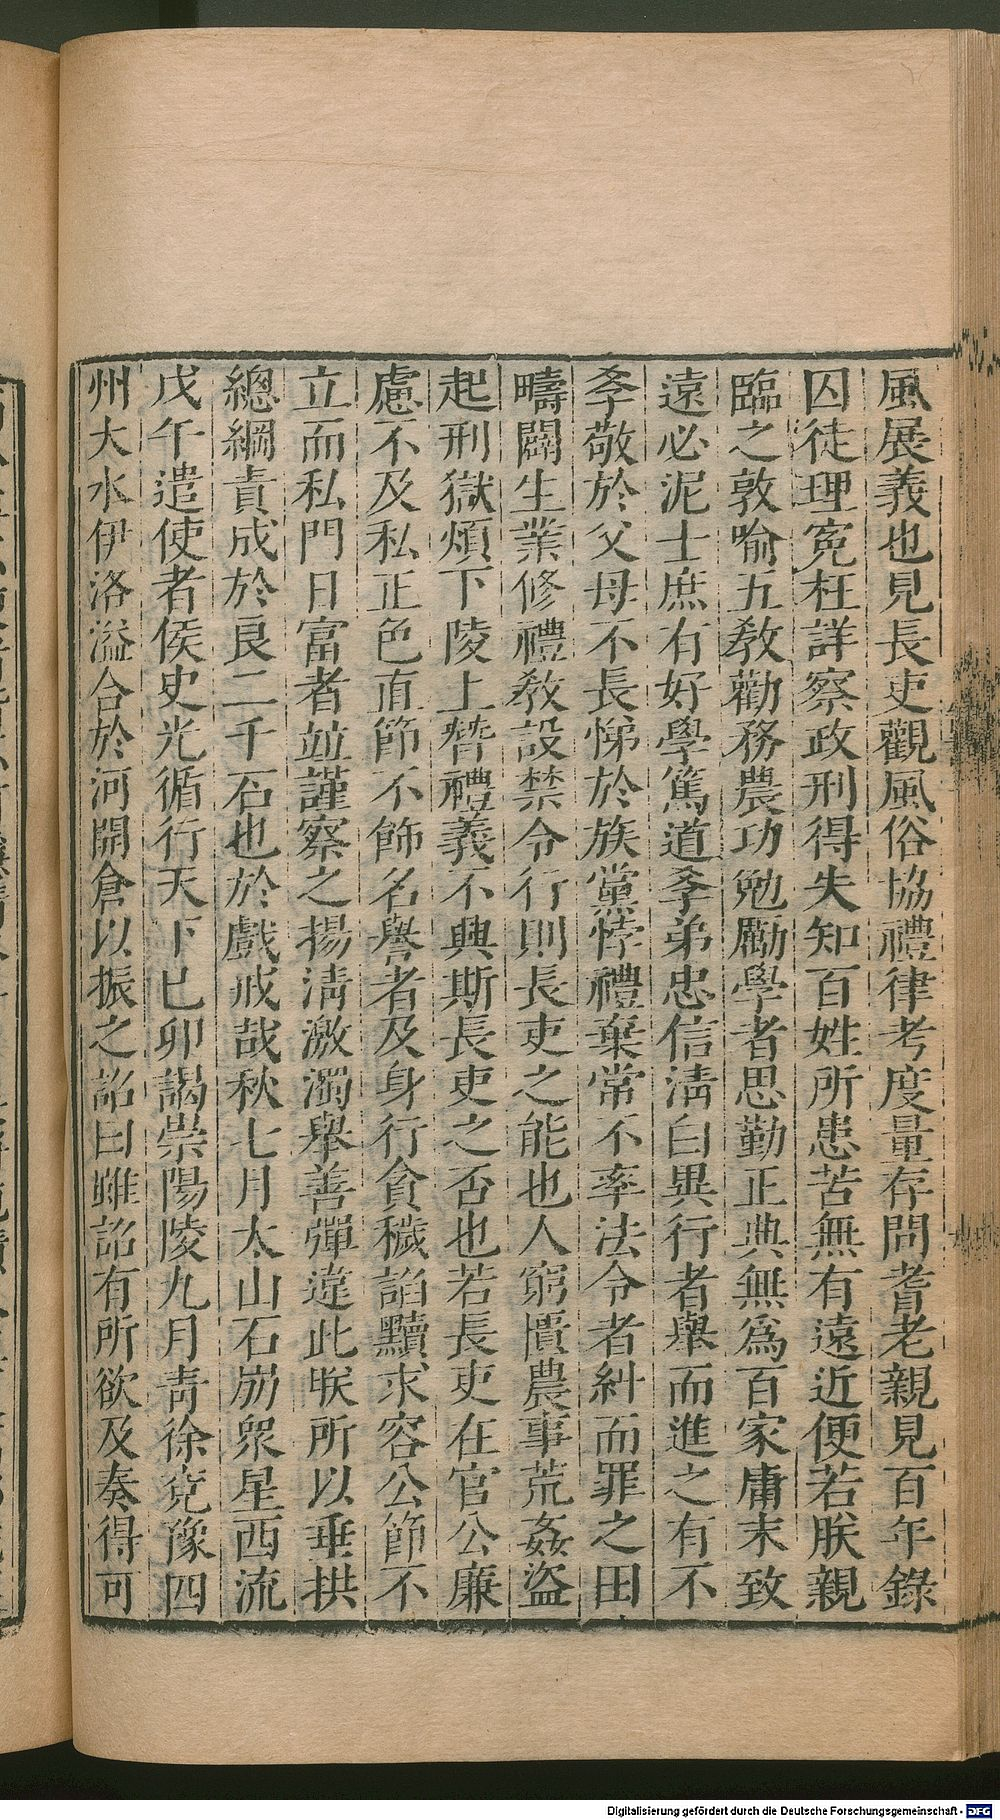 風展義也見長吏觀風俗協禮律考度量存問耆老親見百年錄
囚徒理寃枉詳察政刑得失知百姓所患苦無有遠近便若朕親
臨之敦喻五敎勸務農功勉勵學者思勤正典無爲百家庸末致
遠必泥士庶有好學篤道孝弟忠信淸白異行者舉而進之有不
孝敬於父母不長悌於族黨悖禮棄常不率法令者糾而罪之田
疇闢生業修禮敎設禁令行則長吏之能也人窮匱農事荒姦盜
起刑獄煩下陵上替禮義不興斯長吏之否也若長吏在官公廉
慮不及私正色直節不飾名譽者及身行貪穢諂黷求容公節不
立而私門日富者並謹察之揚淸激濁舉善彈違此朕所以垂拱
總綱責成於良二千石也於戲戒哉秋七月太山石崩衆星西流
戊午遣使者侯史光循行天下己卯謁崇陽陵九月靑徐兖豫四
州大水伊洛溢合於河開倉以振之詔曰雖詔有所欲及奏得可
Digitalisierung gefördert durch die Deutsche Forschungsgemeinschaft - DFG